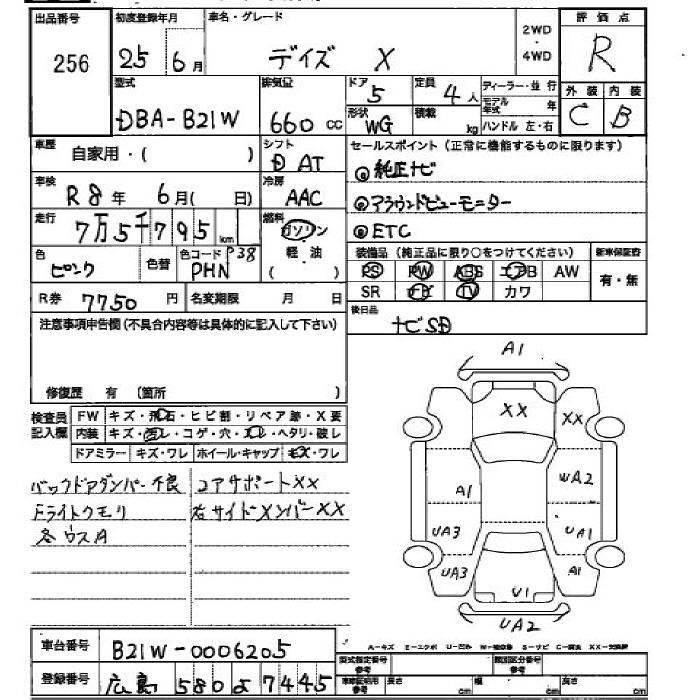 出品番号 初度登録年月 車名・グレード 2WD・4WD 評価点
256 25 6月 デイズ X R
型式 排気量 ドア 5 定員 4人 ディーラー・並行 外装 内装
DBA-B21W 660cc 形状 WG 積載 kg モデル年式 年 ハンドル 左・右 C B
車歴 自家用・( ) シフト AT セールスポイント(正常に機能するものに限ります)
純正ナビ
車検 R8年 6月( 日) 冷房 AAC
アラウンドビューモニター
走行 7万5千795km 燃料 ガソリン 軽・油 ( )
ETC
色 ピンク 色替 色コード P38 PHN
装備品(純正品に限り○をつけてください) 新車保証書
PS PW ABS エアB AW 有・無
SR ナビ TV カワ
R券 7750円 名変期限 月 日
後日品 ナビSD
注意事項申告欄(不具合内容等は具体的に記入して下さい)
修復歴 有 (箇所 )
検査員記入欄 FW キズ・飛石・ヒビ割・リペア跡・X要
内装 キズ・汚レ・コゲ・穴・スレ・ヘタリ・破レ
ドアミラー キズ・ワレ ホイール・キャップ キズ・ワレ
バックドアダンパー不良 コアサポートXX
Fライトクモリ 右サイドメンバーXX
各ウスA
A1
XX XX
A1 WA2
UA3 UA1
UA3 A1
U1
UA2
A-キズ E-エクボ U-凹み W-補修跡 S-サビ C-腐食 XX-交換済
車台番号 B21W-0006205
型式指定番号 参考 類別区分番号 参考
登録番号 広島 580 よ 7445
車庫証明用 参考 長さ cm 幅 cm 高さ cm